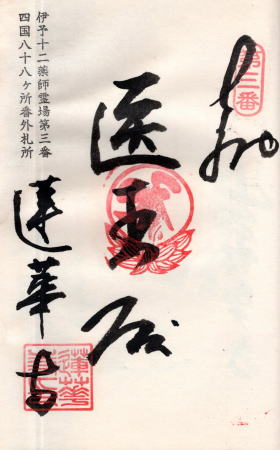 奉
第三番
医王殿
蓮華寺
蓮華寺
伊予十二薬師霊場第三番
四国八十八ヶ所番外札所